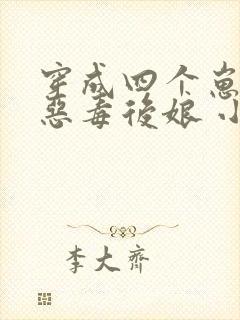 穿成四个崽
恶毒后娘 小
李大齐